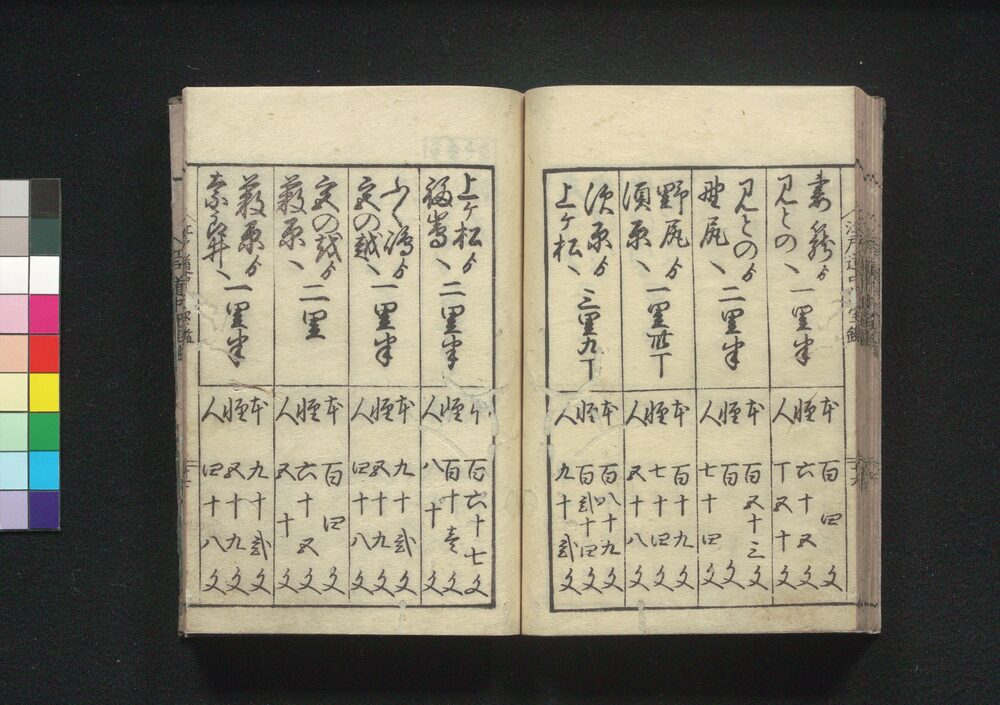 妻籠ゟ
みとのへ 一里半
本 百四文
軽 六十五文
人 五十文
みとのゟ
野尻へ 二里半
本 百五十三文
軽 百文
人 七十四文
野尻ゟ
須原へ 一里卅丁
本 百十九文
軽 七十四文
人 五十八文
須原ゟ
上ヶ松へ 三里九丁
本 百八十九文
軽 百弐十四文
人 九十弐文
上ヶ松ゟ
福嶌へ 二里半
本 百六十七文
軽 百十壱文
人 八十文
ふく嶋ゟ
宮の越へ 一里半
本 九十弐文
軽 五十九文
人 四十八文
宮の越ゟ
藪原へ 二里
本 百四文
軽 六十五文
人 五十文
藪原ゟ
奈良井へ 一里半
本 九十弐文
軽 五十九文
人 四十八文